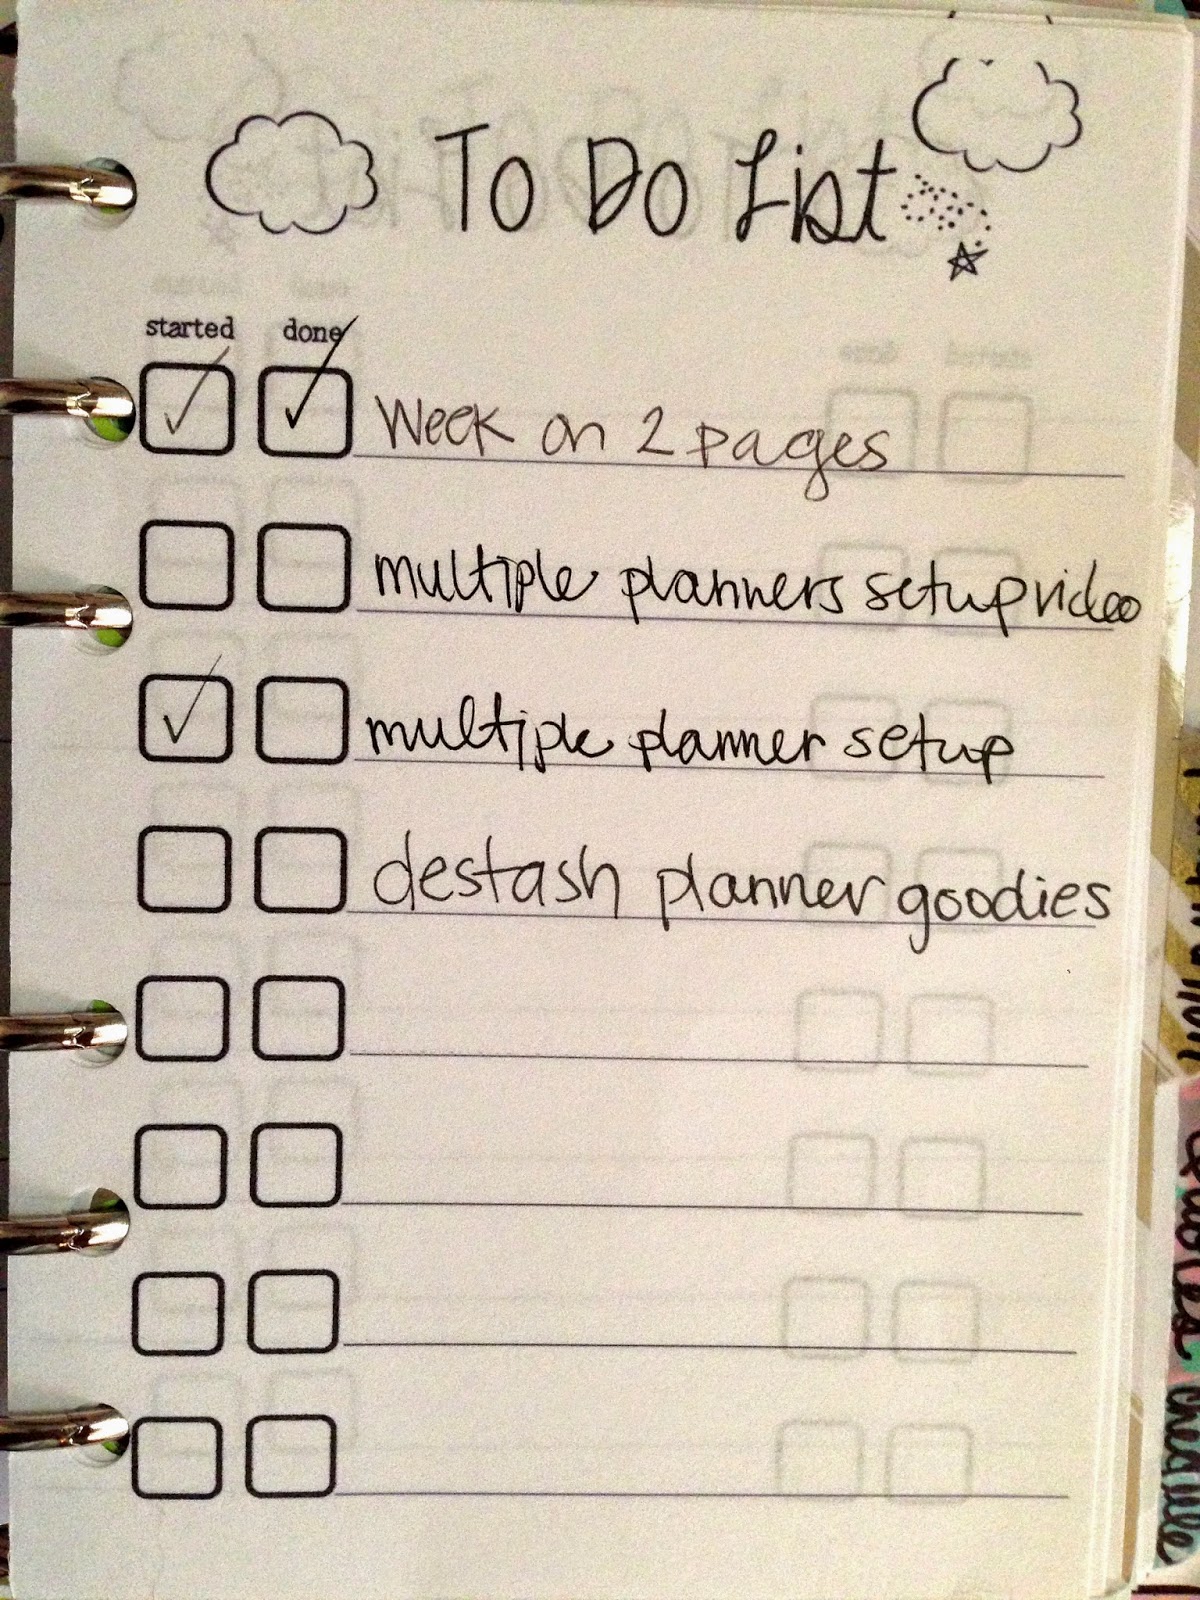 To Do List
started done
Week on 2 pages
multiple planners setup video
multiple planner setup
destash planner goodies